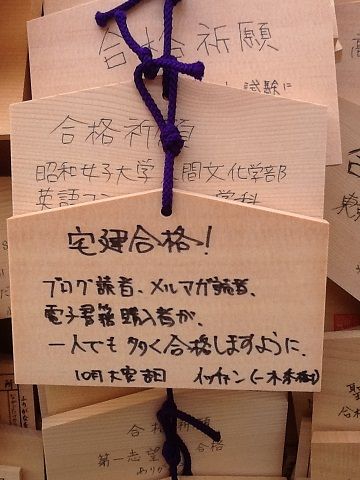 合格祈願
試験に
合格祈願
昭和女子大学 人間文化学部
英語コ 学科
宅建合格!
ブログ読者、メルマガ読者、
電子書籍購入者が、
一人でも多く合格しますように、
10月大安吉日 イッチャン(一木秀樹)
合格祈願
第一志望 合格